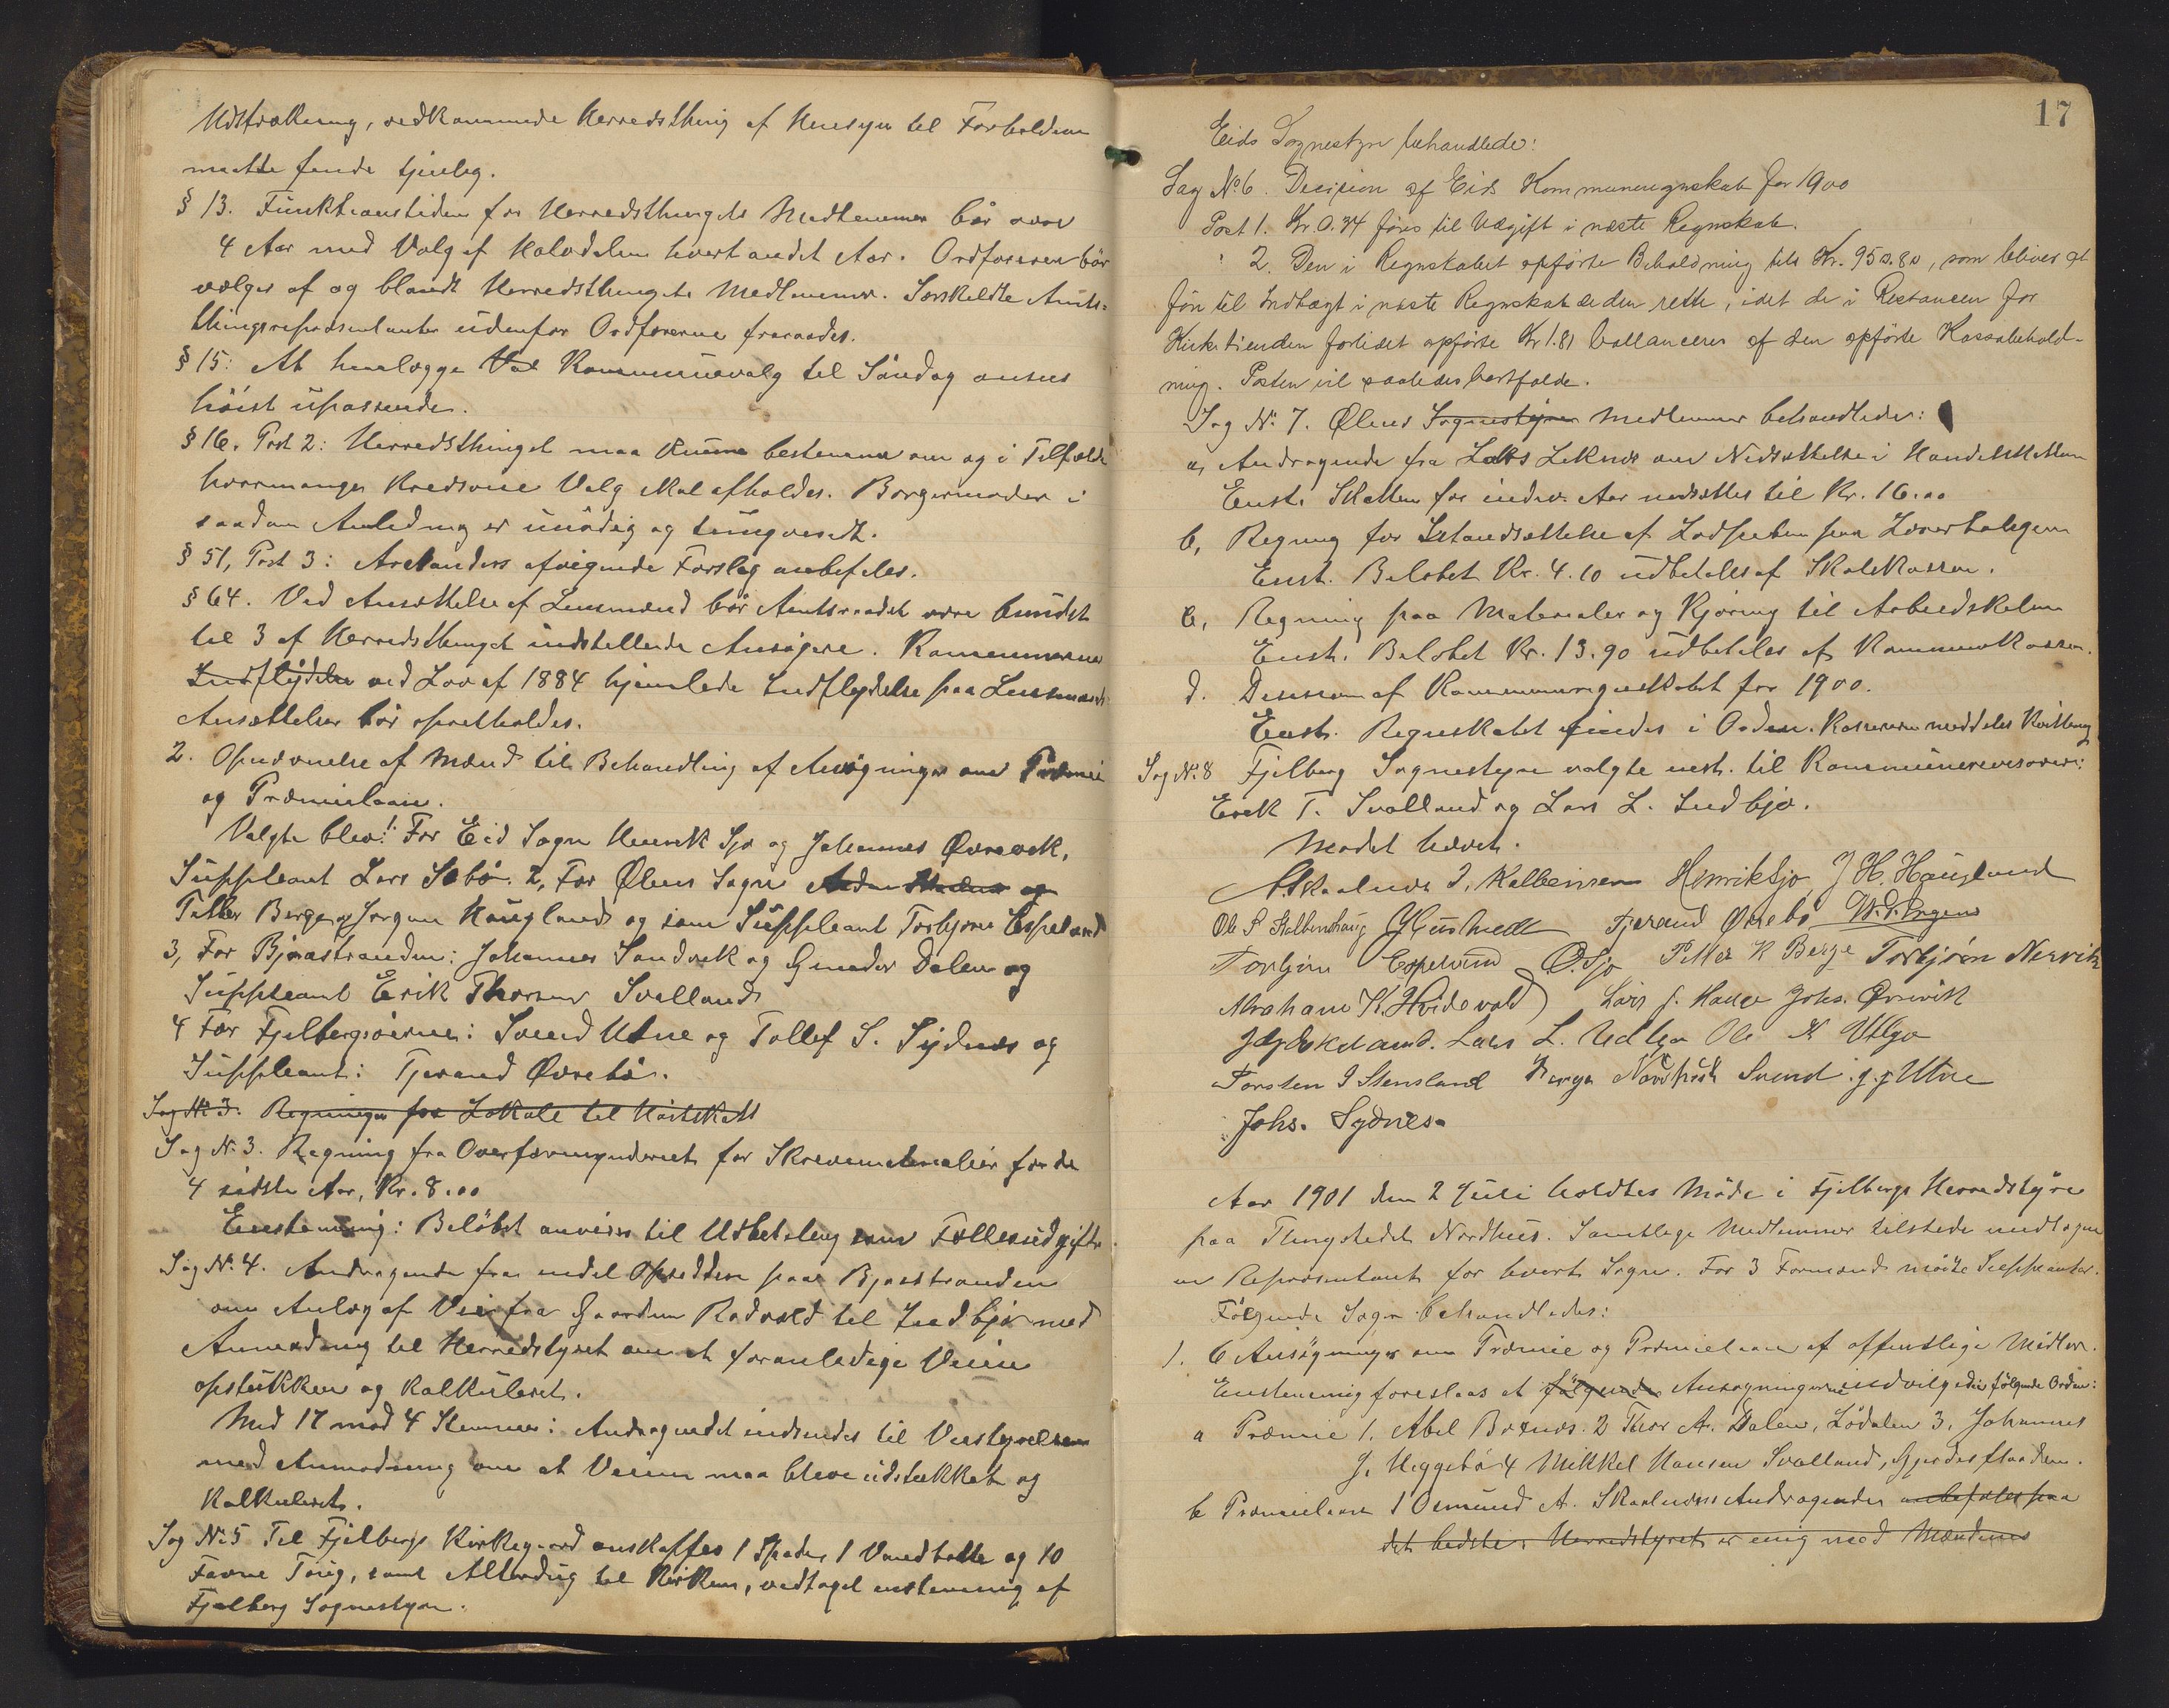 Udstrækning, vedkommende Herredsthing af Hensyn til Forholdene
maatte finde tjenlig.
§ 13. Funktionstiden for Herredsthingets Medlemmer bör være
4 Aar med Valg af Halvdelen hvert andet Aar. Ordföreren bör
vælges af og blandt Herredsthingets Medlemmer. Særskildte Amts-
thingsrepræsentanter udenfor Ordförerne fraraades.
§ 15: At henlægge Val Kommunevalg til Söndag ansees
höist upassende.
§ 16. Post 2: Herredsthinget maa kunne bestemme om og i Tilfælde
hvormange Kredsvise Valg skal afholdes. Borgermöder i
saadan Anledning er unödig og tungvindt.
§ 51, Post 3: Arctanders afvigende Forslag anbefales.
§ 64. Ved Ansættelse af Lensmænd bör Amtsraadet være bundet
til 3 af Herredsthinget indstillede Ansögere. Kommunernes
Indflydelse ved Lov af 1884 hjemlede Indflydelse paa Lensmands
Ansættelser bör opretholdes.
2. Opnævnelse af Mænd til Behandling af Ansögninger om Præmie
og Præmielaan.
Valgte blev: 1. For Eid Sogn Henrik Sjo og Johannes Øvrevik,
Suppleant Lars Sebö. 2, For Ølens Sogn
Petter Berge og Jorgen Haugland og som Suppleant Torbjörn Espeland
3, For Bjoastranden: Johannes Sandvik og Gunder Dalen og
Suppleant Erik Thorsen Svalland
4 For Fjelbergsöerne: Svend Utne og Tollef S. Sydnæs og
Suppleant: Tjerand Øvrebö.
Sag N. 3: Regninger for Lokale til Höstskatt
Sag N. 3. Regning fra Overformynderiet for Skrivematerialier for de
4 sidste Aar, Kr. 8.00
Enstemmig: Belöbet anvises til Udbetaling som Fællesudgift.
Sag N. 4. Andragende fra endel Opsiddere paa Bjoastranden
om Anlæg af Vei fra Gaarden Rødvold til Indbjo med
Anmodning til Herredstyret om at foranledige Veien
opstukken og kalkuleret.
Med 17 mod 4 Stemmer: Andragendet indsendes til Veistyrelsen
med Anmodning om at Veien maa blive udstukket og
kalkuleret.
Sag N. 5 Til Fjelbergs Kirkegaard anskaffes 1 Spade, 1 Vandbötte og 10
Favne Toug, samt Alterdug til Kirken, vedtaget enstemmig af
Fjelberg Sognestyre.
17
Eids Sognestyre behandlede:
Sag No 6. Decision af Eids Kommuneregnskab for 1900
Post 1. Kr. 0.34 föres til Udgift i næste Regnskab.
" 2. Den i Regnskabet opförte Beholdning Kr. 950.80, som bliver at
före til Indtægt i næste Regnskab er den rette, idet de i Restancen for
Kirketienden forlidet opförte Kr 1.81 ballancerer af den opförte Kassabehold-
ning. Posten vil saaledes bortfalde.
Sag N. 7. Ølens Sognestyre Medlemmer behandlede:
a, Andragende fra Lars Leknes om Nedsættelse i Handelskatten
Enst. Skatten for indev. Aar nedsættes til Kr. 16.00
b, Regning for Istandsættelse af paa Lærerboligen
Enst. Belöbet Kr. 4.10 udbetales af Skolekassen.
c, Regning paa Materialer og Kjöring til Arbeidskolen
Enst. Belöbet Kr. 13.90 udbetales af Kommunekassen.
d. Decision af Kommuneregnskabet for 1900.
Enst. Regnskabet findes i Orden. Kassereren meddeles Kvittering
Sag N. 8 Fjelberg Sognestyre valgte enst. til Kommunerevisorer:
Erik T. Svalland og Lars L. Indbjo.
Mödet hævet.
A. Skaalnes I. Kalbeinsen Henrik Sjo J. H. Haugland
Ole S Kalbenshaug Tjerand Øvrebö
Torbjörn Espeland O. Sjo Petter K Berge Torbjörn Nervik
Abraham K. Hvidevold Lars J. Hauge Johs. Örevik
Lars L. Indbjo Ole A Utbjo
Torsten I Stensland Svend J. J. Utne
Johs. Sydnes.
Aar 1901 den 2 Juli holdtes Möde i Fjelbergs Herredstyre
paa Thingstedet Nordhus. Samtlige Medlemmer tilstede undtagen
en Repræsentant for hvert Sogn. For 3 Formænd möite Suppleanter.
Fölgende Sager behandledes:
1. 6 Ansögninger om Præmie og Præmielaan af offentlige Midler.
Enstemmig foreslaaes at fölgende Ansögningerne indvilges i fölgende Orden:
a Præmie 1. Abel Børnes. 2 Thor A. Dalen, Lödalen 3. Johannes
J. Heggebö 4 Mikkel Hansen Svalland, Gjerdesflaaden.
b Præmielaan 1 Osmund A. Skaalnæs Andragender anbefales paa
det bedste. Herredstyret er enig med Mændenes